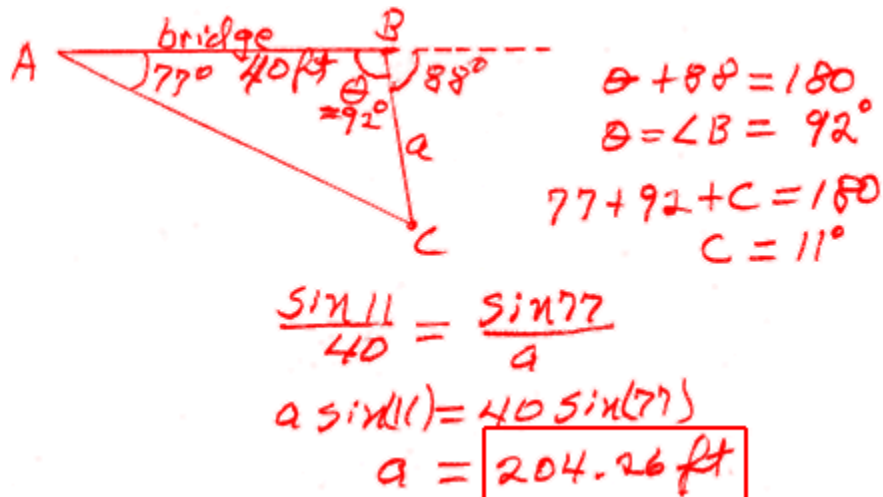 bridge B
A 77° 40ft θ 88°
=92°
a
C
θ + 88 = 180
θ = ∠B = 92°
77 + 92 + C = 180
C = 11°
sin 11 / 40 = sin 77 / a
a sin(11) = 40 sin(77)
a = 204.26 ft